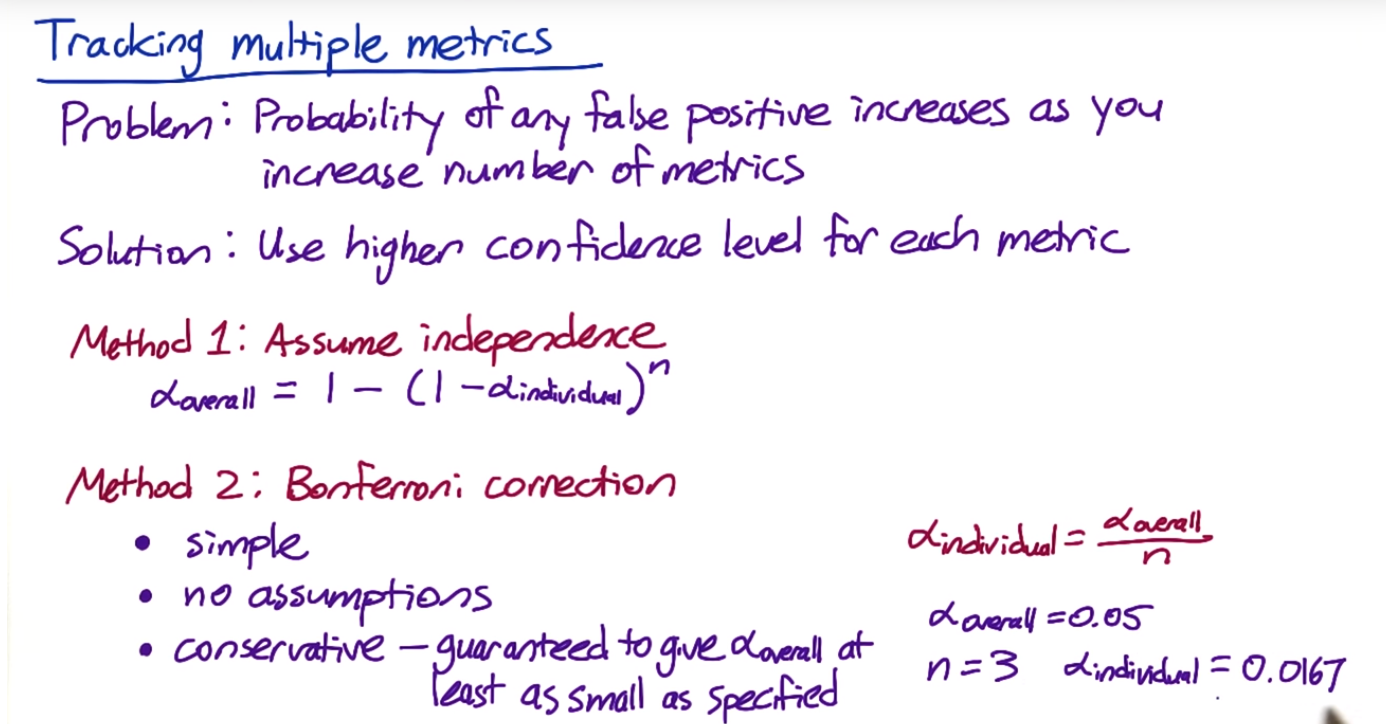 Tracking multiple metrics
Problem: Probability of any false positive increases as you
increase number of metrics
Solution: Use higher confidence level for each metric
Method 1: Assume independence
αoverall = 1 − (1 − αindividual)ⁿ
Method 2: Bonferroni correction
• simple
• no assumptions
• conservative – guaranteed to give αoverall at
least as small as specified
αindividual = αoverall / n
αoverall = 0.05
n = 3 αindividual = 0.0167